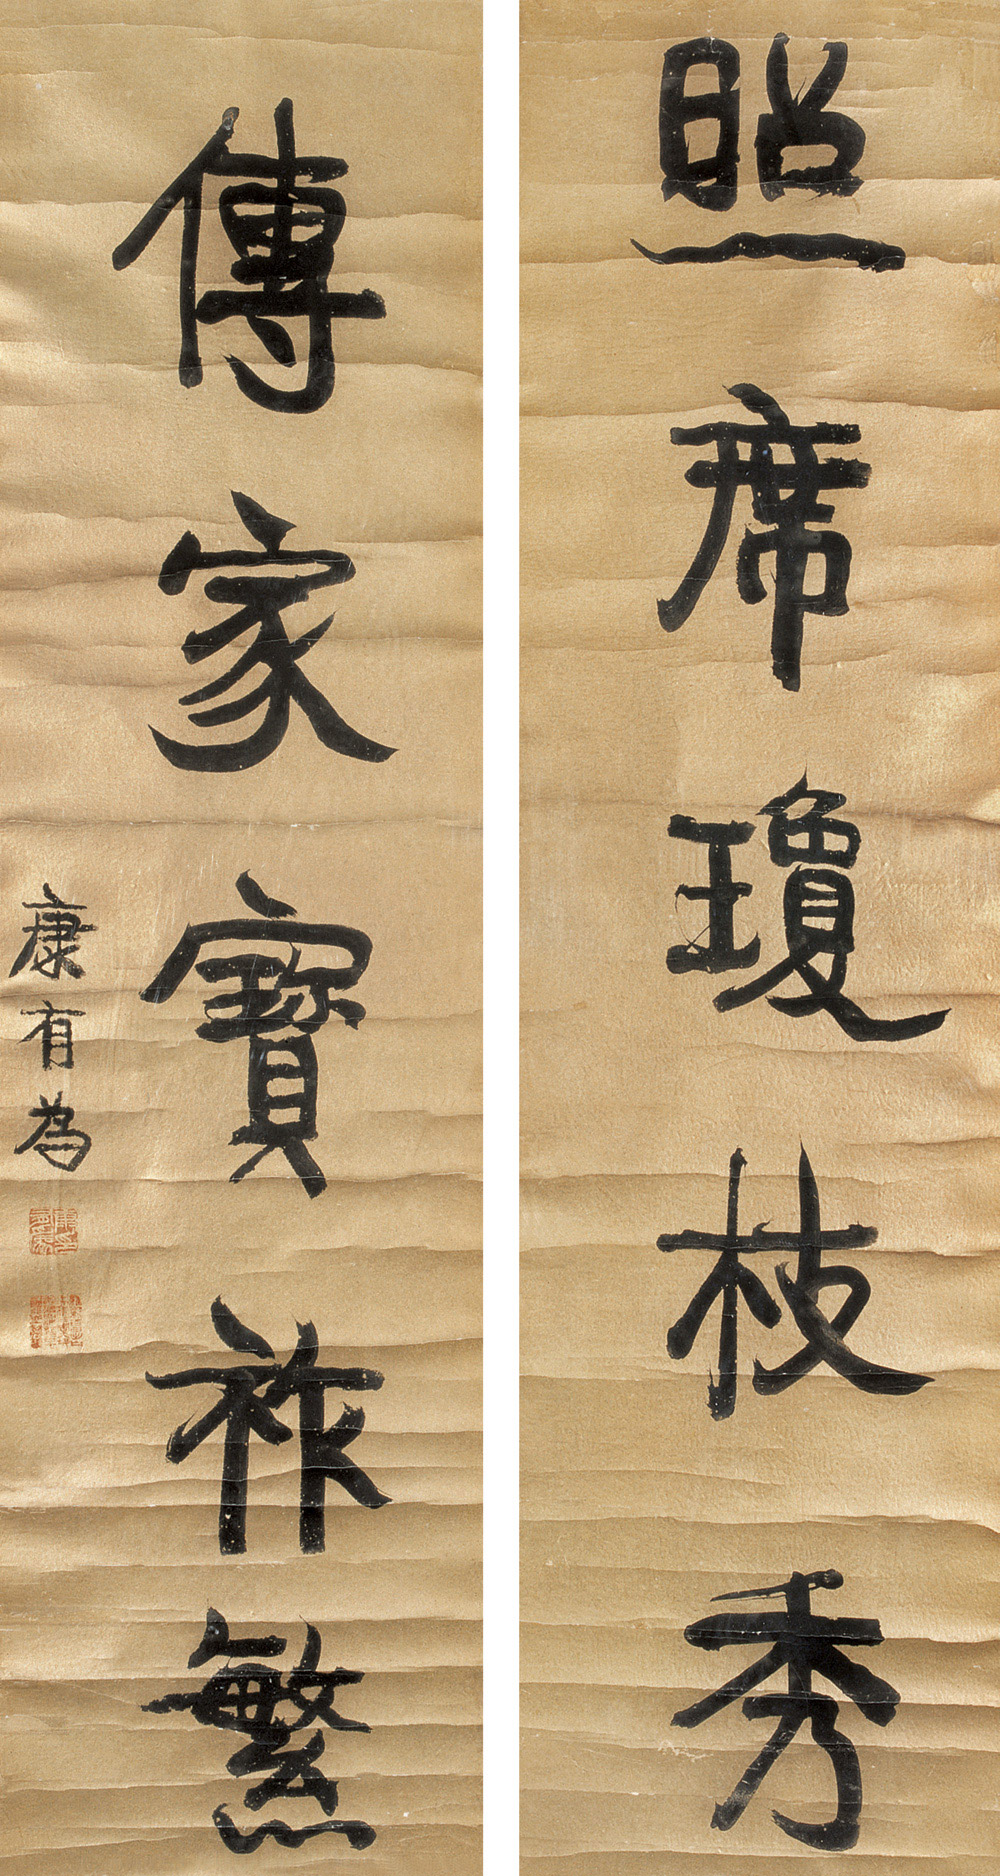 照席瓊枝秀
傳家寶祚繁
康有為